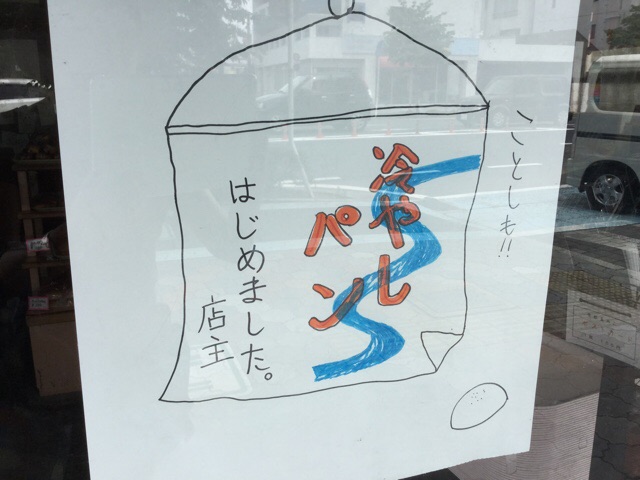 ことしも!!
冷やし
パン
はじめました。
店主